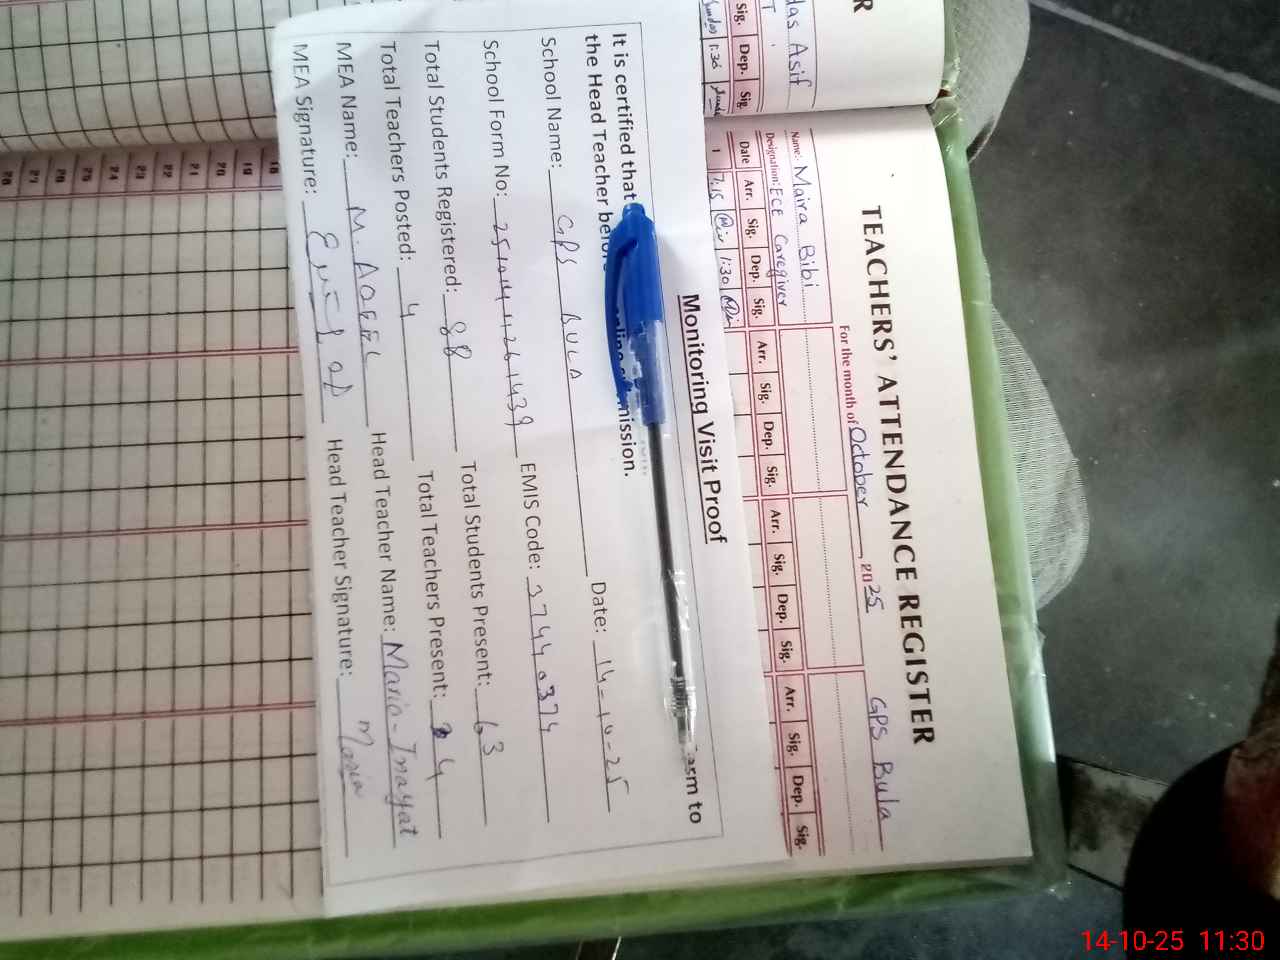 TEACHERS' ATTENDANCE REGISTER
For the month of October, 2025 GPS Bula
Name:- Maira Bibi
Designation: ECE Caregiver
Date Arr. Sig. Dep. Sig. Arr. Sig. Dep. Sig. Arr. Sig. Dep. Sig. Arr. Sig. Dep. Sig.
1 7:15 1:30
R
das Asif
T
Sig. Dep. Sig.
Sunday 1:30
Monitoring Visit Proof
It is certified that asm to
the Head Teacher before online submission.
School Name: GPS BULA Date: 14-10-25
School Form No: EMIS Code: 37440374
Total Students Registered: 88 Total Students Present: 63
Total Teachers Posted: 4 Total Teachers Present: 4
MEA Name: M. AQEEL Head Teacher Name: Maria-Inayat
MEA Signature: Head Teacher Signature: Maria
18
19
20
21
22
23
24
25
26
27
28
14-10-25 11:30